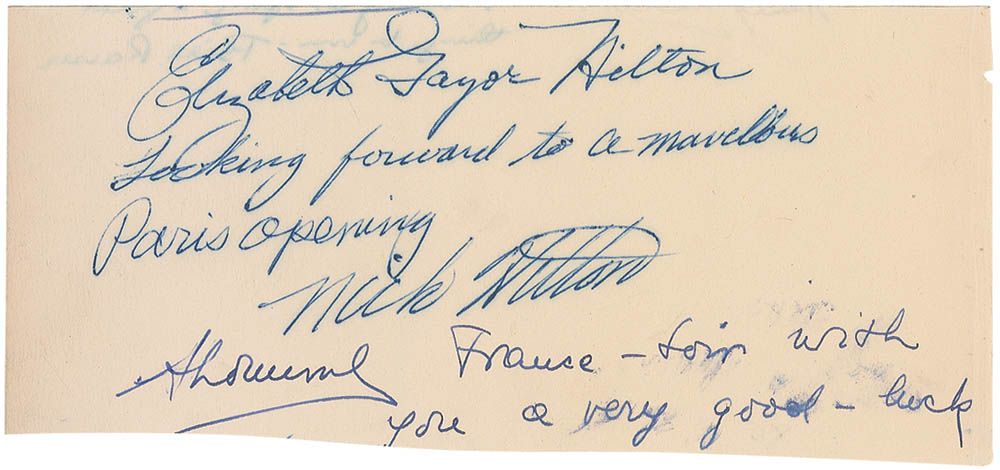 Elizabeth Tayor Hilton
Looking forward to a mavellous
Paris opening
Nick Hilton
France – with
you a very good – luck